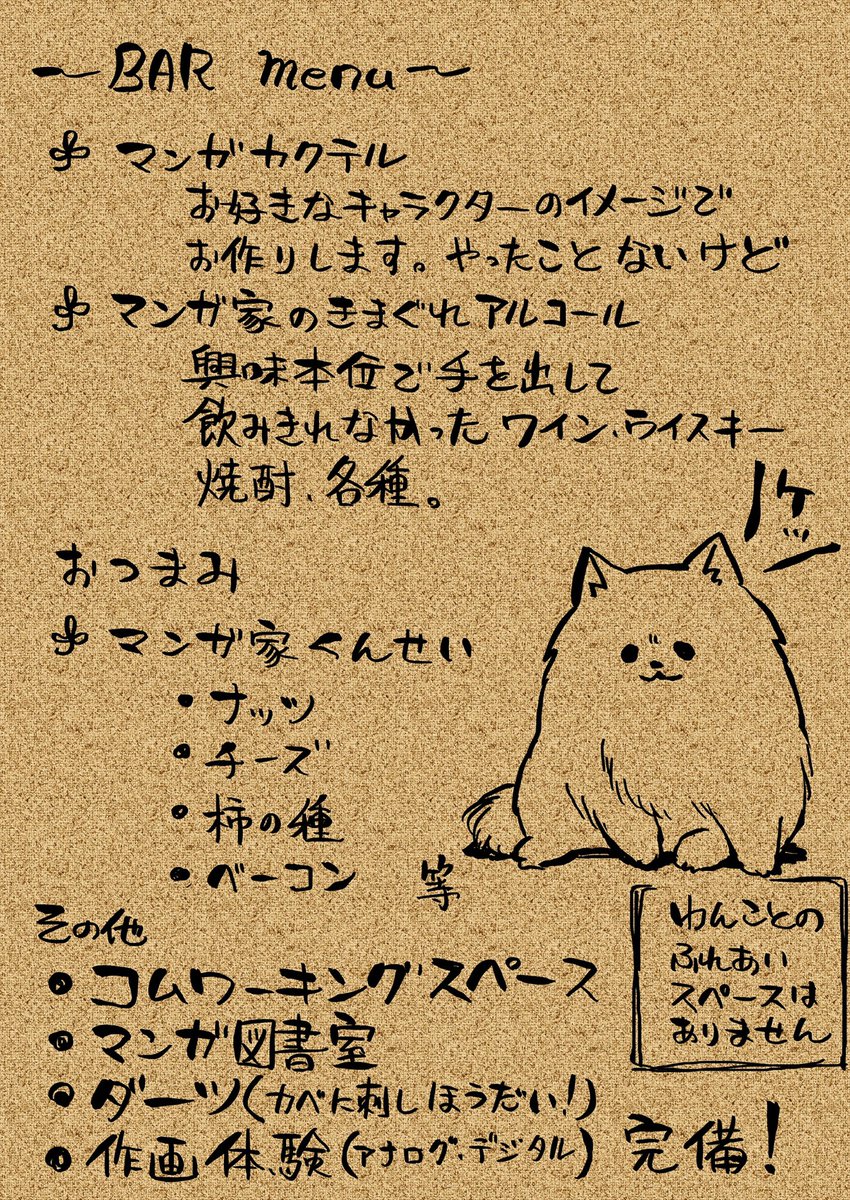 ～BAR menu～
マンガカクテル
お好きなキャラクターのイメージで
お作りします。やったことないけど
マンガ家のきまぐれアルコール
興味本位で手を出して
飲みきれなかったワイン、ウイスキー
焼酎、各種。
ケッ
おつまみ
マンガ家くんせい
・ナッツ
・チーズ
・柿の種
・ベーコン 等
わんことの
ふれあい
スペースは
ありません
その他
・コムワーキングスペース
・マンガ図書室
・ダーツ(カベに刺しほうだい!)
・作画体験(アナログ・デジタル) 完備!